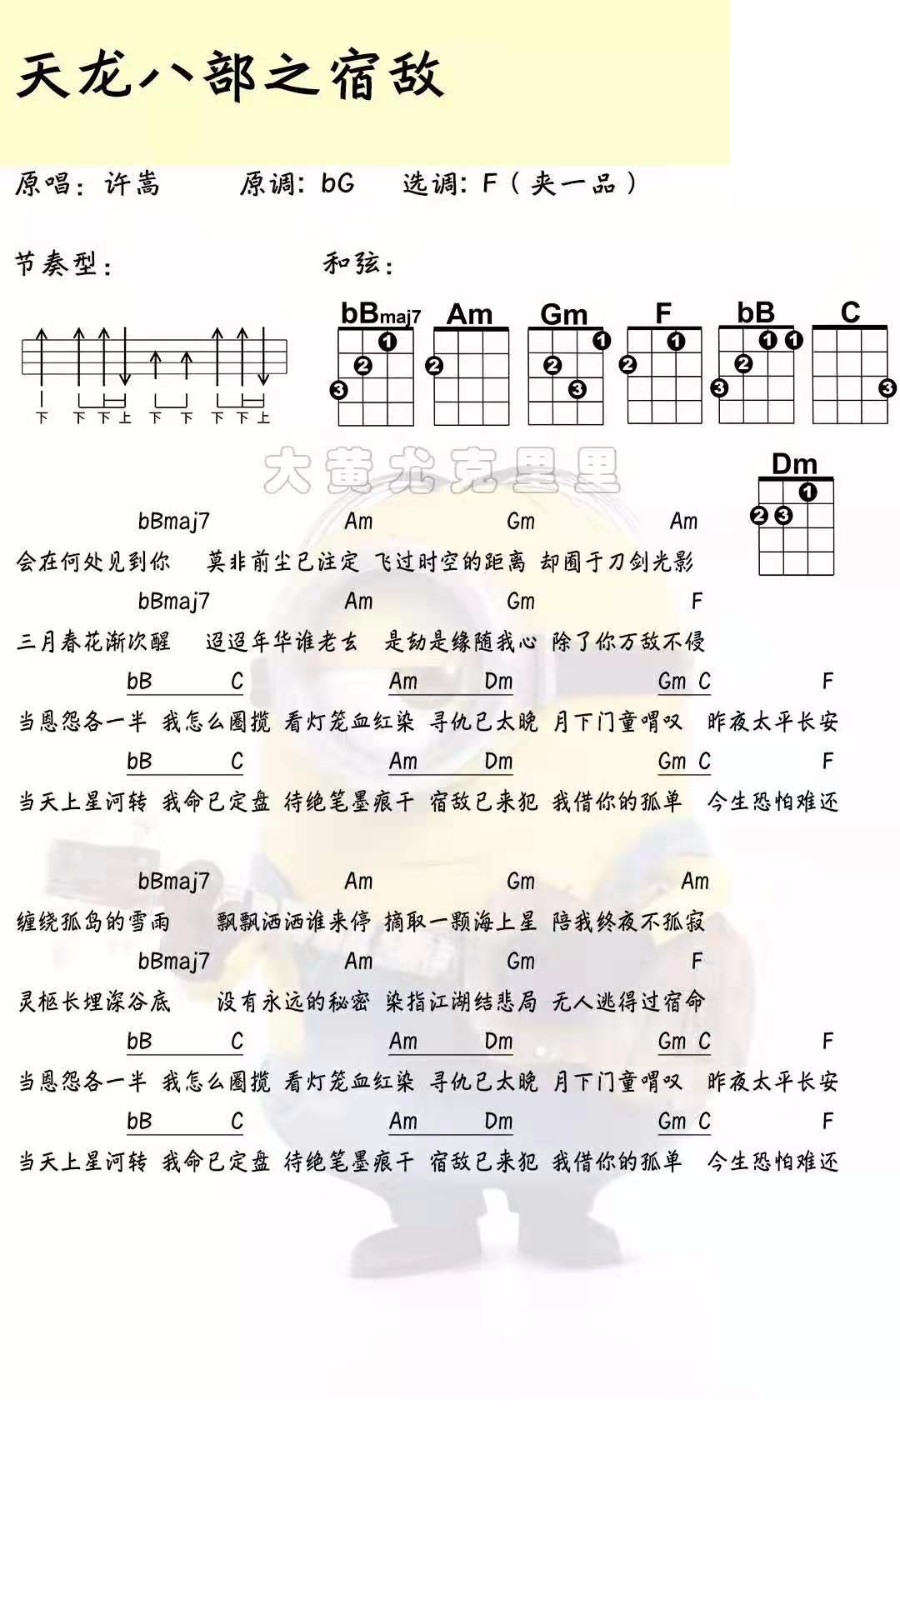 天龙八部之宿敌
原唱：许嵩 原调：bG 选调：F（夹一品）
节奏型： 和弦：
bBmaj7 Am Gm F bB C
下 下 下 上 下 下 下 下 上
大黄尤克里里
Dm
bBmaj7 Am Gm Am
会在何处见到你 莫非前尘已注定 飞过时空的距离 却囿于刀剑光影
bBmaj7 Am Gm F
三月春花渐次醒 迢迢年华谁老去 是劫是缘随我心 除了你万敌不侵
bB C Am Dm Gm C F
当恩怨各一半 我怎么圈揽 看灯笼血红染 寻仇已太晚 月下门童喟叹 昨夜太平长安
bB C Am Dm Gm C F
当天上星河转 我命已定盘 待绝笔墨痕干 宿敌已来犯 我借你的孤单 今生恐怕难还
bBmaj7 Am Gm Am
缠绕孤岛的雪雨 飘飘洒洒谁来停 摘取一颗海上星 陪我终夜不孤寂
bBmaj7 Am Gm F
灵枢长埋深谷底 没有永远的秘密 染指江湖结悲局 无人逃得过宿命
bB C Am Dm Gm C F
当恩怨各一半 我怎么圈揽 看灯笼血红染 寻仇已太晚 月下门童喟叹 昨夜太平长安
bB C Am Dm Gm C F
当天上星河转 我命已定盘 待绝笔墨痕干 宿敌已来犯 我借你的孤单 今生恐怕难还